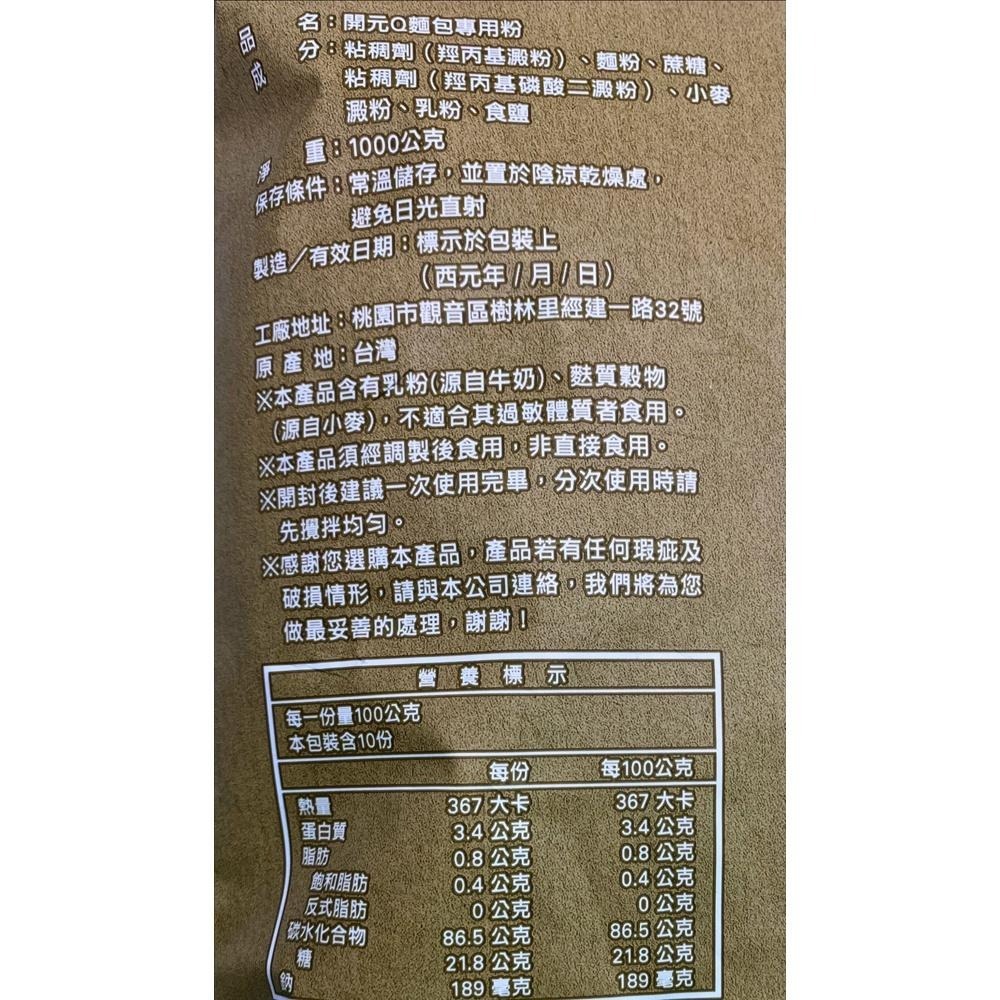 品　名：開元Q麵包專用粉
成　分：粘稠劑（羥丙基澱粉）、麵粉、蔗糖、
粘稠劑（羥丙基磷酸二澱粉）、小麥
澱粉、乳粉、食鹽
淨　重：1000公克
保存條件：常溫儲存，並置於陰涼乾燥處，
避免日光直射
製造／有效日期：標示於包裝上
（西元年/月/日）
工廠地址：桃園市觀音區樹林里經建一路32號
原產地：台灣
※本產品含有乳粉(源自牛奶)、麩質穀物
(源自小麥)，不適合其過敏體質者食用。
※本產品須經調製後食用，非直接食用。
※開封後建議一次使用完畢，分次使用時請
先攪拌均勻。
※感謝您選購本產品，產品若有任何瑕疵及
破損情形，請與本公司連絡，我們將為您
做最妥善的處理，謝謝！
營養標示
每一份量100公克
本包裝含10份
每份　每100公克
熱量　367 大卡　367 大卡
蛋白質　3.4 公克　3.4 公克
脂肪　0.8 公克　0.8 公克
飽和脂肪　0.4 公克　0.4 公克
反式脂肪　0 公克　0 公克
碳水化合物　86.5 公克　86.5 公克
糖　21.8 公克　21.8 公克
鈉　189 毫克　189 毫克